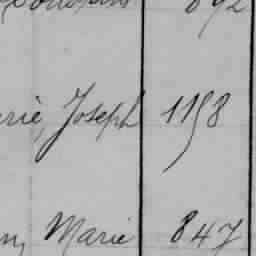 892
rie, Joseph 1158
Marie 847